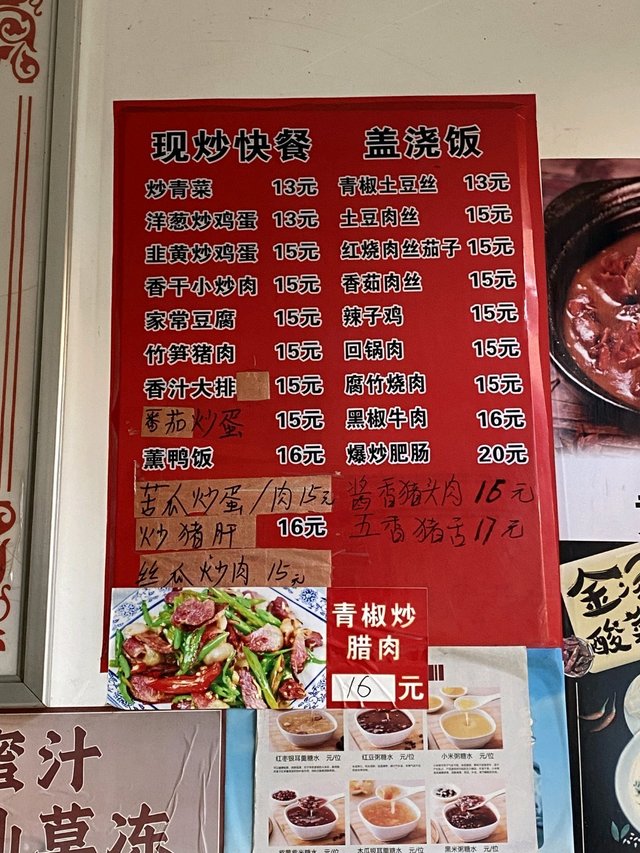 现炒快餐
炒青菜 13元
洋葱炒鸡蛋 13元
韭黄炒鸡蛋 15元
香干小炒肉 15元
家常豆腐 15元
竹笋猪肉 15元
香汁大排 15元
番茄炒蛋 15元
薰鸭饭 16元
苦瓜炒蛋/肉15元
炒猪肝 16元
丝瓜炒肉 15元
盖浇饭
青椒土豆丝 13元
土豆肉丝 15元
红烧肉丝茄子 15元
香茹肉丝 15元
辣子鸡 15元
回锅肉 15元
腐竹烧肉 15元
黑椒牛肉 16元
爆炒肥肠 20元
酱香猪头肉 16元
五香猪舌 17元
青椒炒
腊肉
16元
红枣银耳羹糖水 元/位
红豆粥糖水 元/位
小米粥糖水 元/位
木瓜银耳羹糖水 元/位
黑米粥糖水 元/位
蜜汁
仙草冻
金汤
酸菜